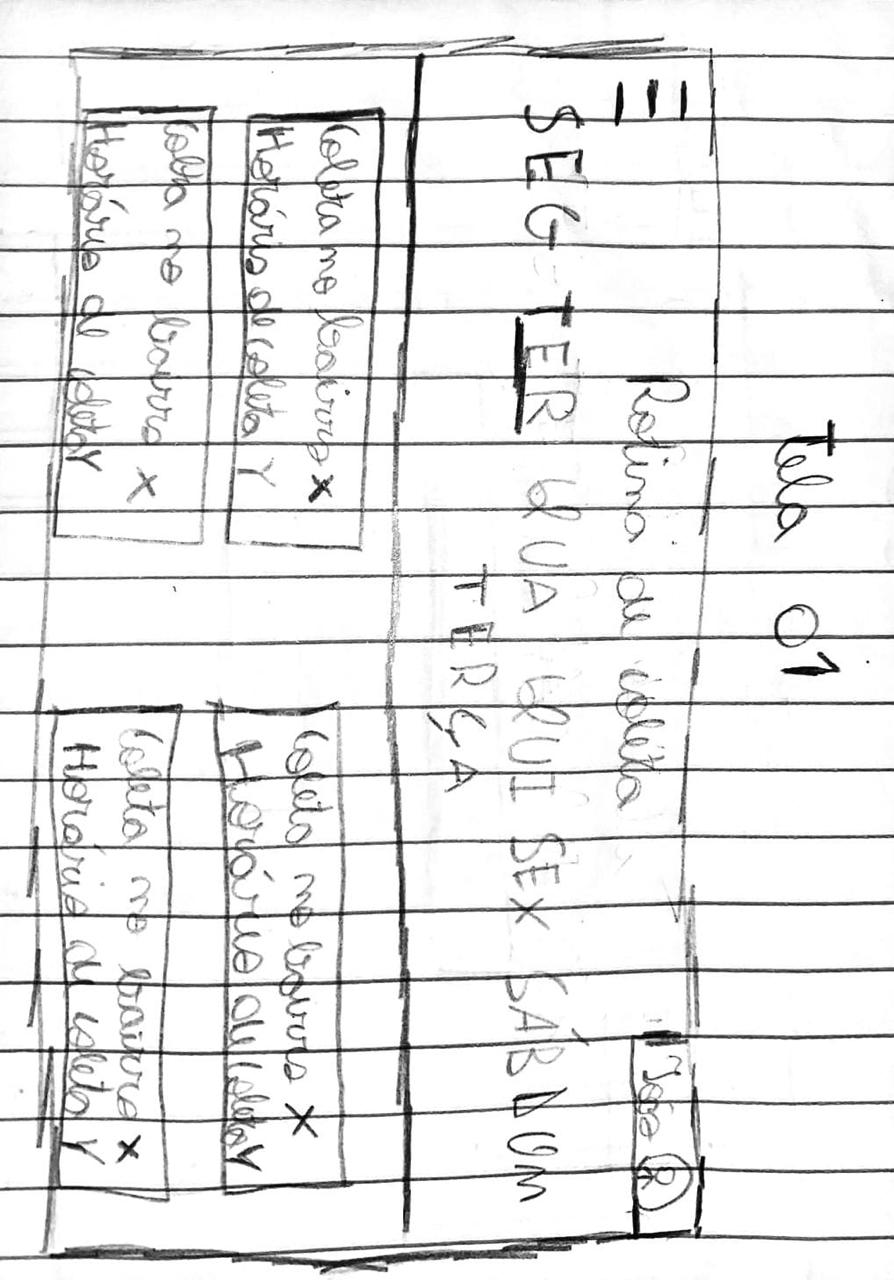 Tela 01
Rotina de coleta
João
SEG TER QUA QUI SEX SÁB DOM
TERÇA
Coleta no bairro X
Horário de coleta Y
Coleta no bairro X
Horário de coleta Y
Coleta no bairro X
Horário de coleta Y
Coleta no bairro X
Horário de coleta Y